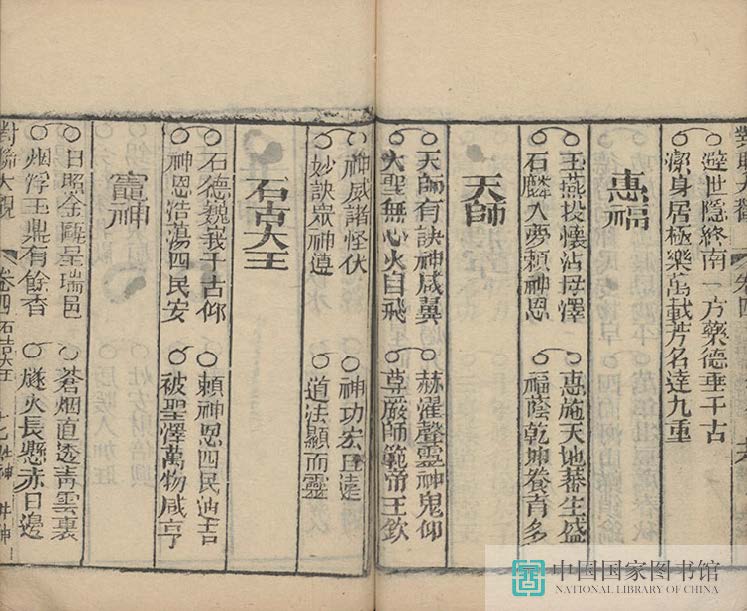 避世隱終南一方藥德垂千古
潔身居極樂萬載芳名達九重
惠福
玉燕投懷沾母澤
石麟入夢賴神恩
惠施天地蕃生盛
福蔭乾坤養育多
天師
天師有訣神咸翼
大聖無心火自飛
赫濯聲靈神鬼仰
尊嚴師範帝王欽
神威諸怪伏
妙訣眾神遵
神功宏且達
道法顯而靈
石古大王
石德巍峩千古仰
神恩浩蕩四民安
賴神恩四民迪吉
被聖澤萬物咸亨
竈神
日照金甌呈瑞邑
烟浮玉鼎有餘香
蒼烟直透青雲裏
燧火長懸赤日邊
對聯大觀
卷四
中国国家图书馆
NATIONAL LIBRARY OF CHINA